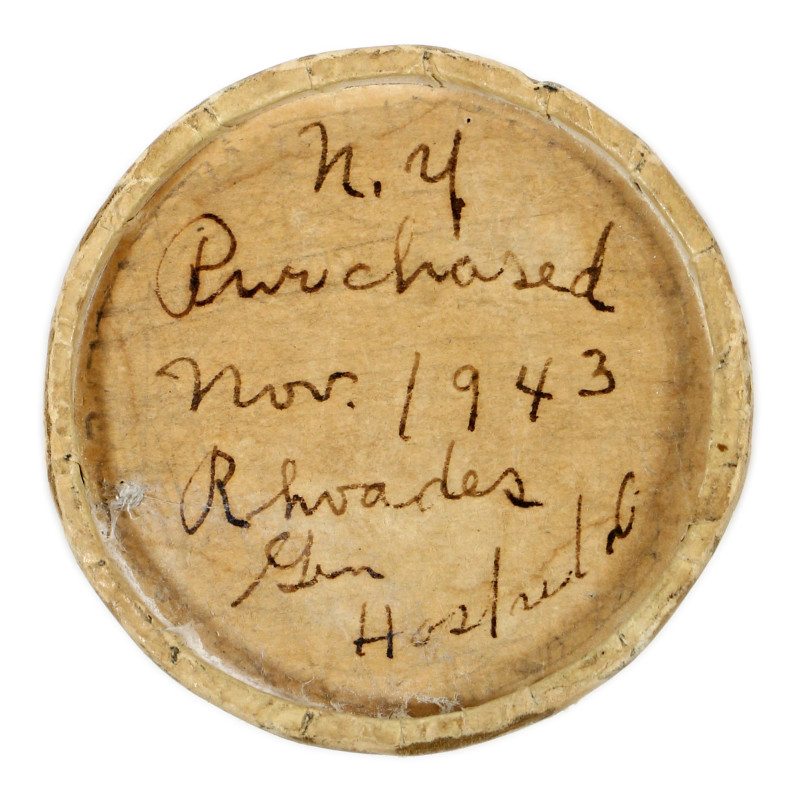 N.Y
Purchased
Nov. 1943
Rhoades
Gen
Hospital